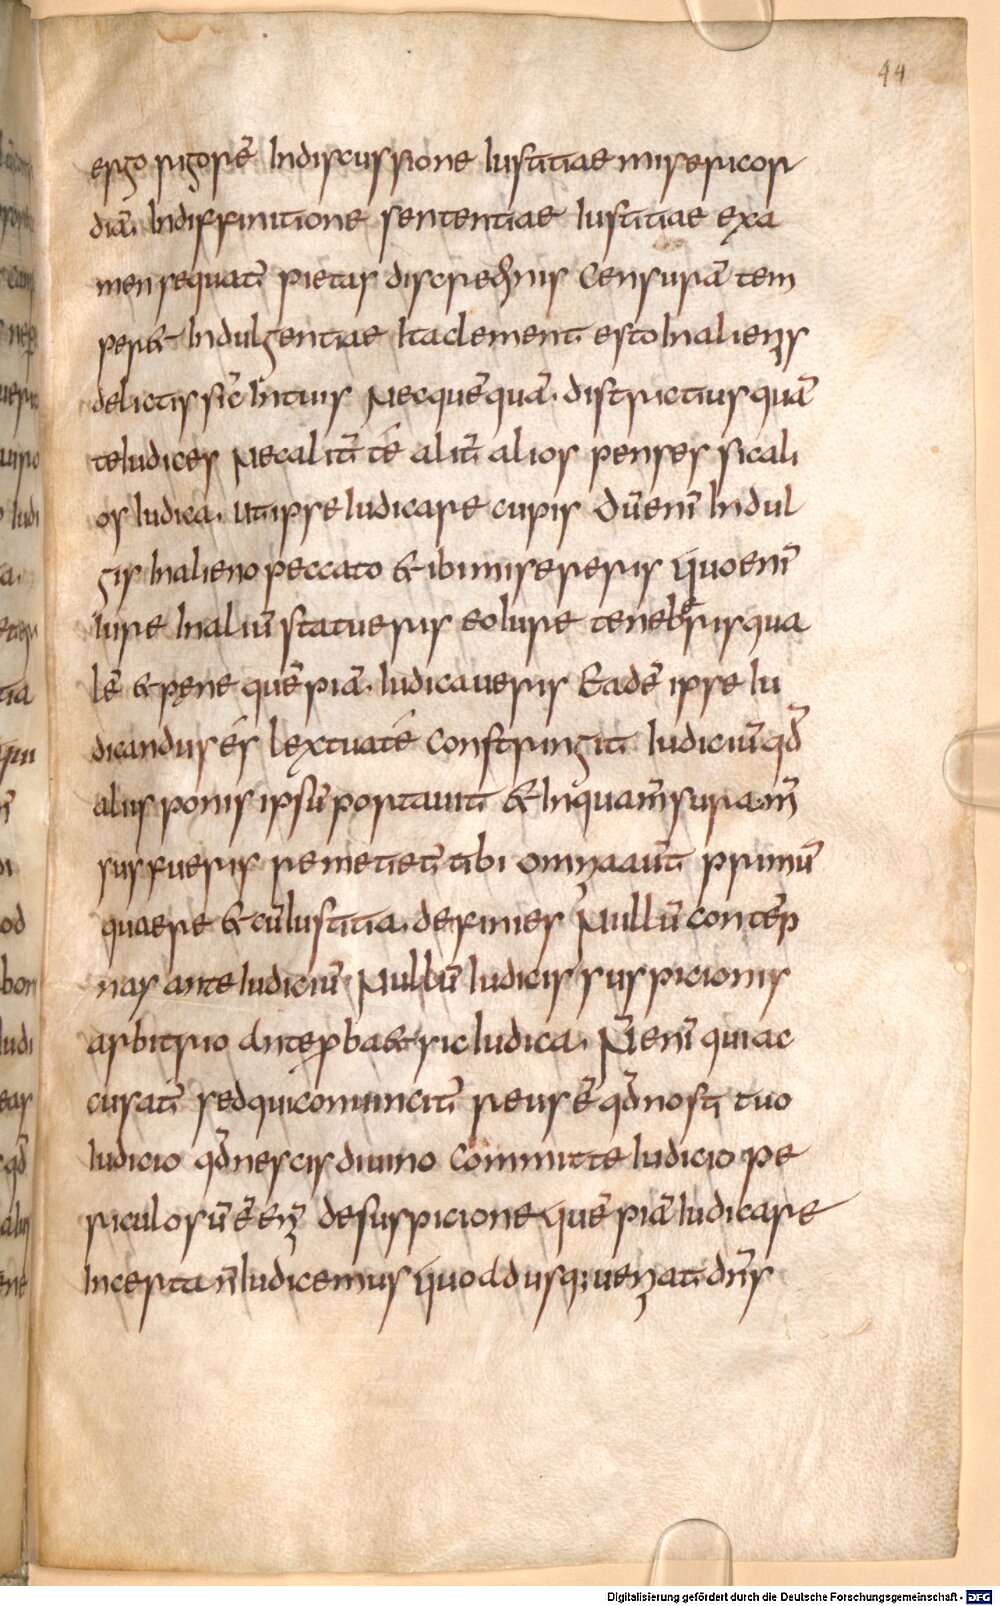 44
ergo rigorē Indiscussione Iustitiae misericor
diā. Indiffinitione sententiae Iustitiae exa
men sequat̄ pietas discrec̄nis Censurā tem
per& Indulgentiae Itaclement̄ esto Inalienis
delictis sīc Intuis Necquēquā. districtius quā
teIudices Necalit̄ té alit̄ alios penses sicali
os Iudica. Utipse Iudicare cupis Dūenī Indul
gis Inalieno peccato &ibimisereris Quoenī
Iure Inaliū statueris eoIure teneberis qua
lē &pęne quēpiā. Iudicaueris Eadē ipse Iu
dicandus és Lextuaté Constringit Iudiciū qd̄
aliis ponis ipsū portauit &Inquam̄sura.m̄
sus fueris remetiet̄ tibi omnia aūt primū
quaere &cūIustitia.definies Nullū contēp
nas ante Iudiciū. Nullū Iudicis suspicionis
arbitrio Anteproba &sic Iudica. N̄enī quiac
cusat̄ sedquiconuincit̄ reus ē qd̄nosti tuo
Iudicio qd̄nescis diuino Committe Iudicio pe
riculosū ē eni desuspicione quēpiā Iudicare
Incerta n̄Iudicemus Quoaddusq; ueniat dn̄s
Digitalisierung gefördert durch die Deutsche Forschungsgemeinschaft - DFG